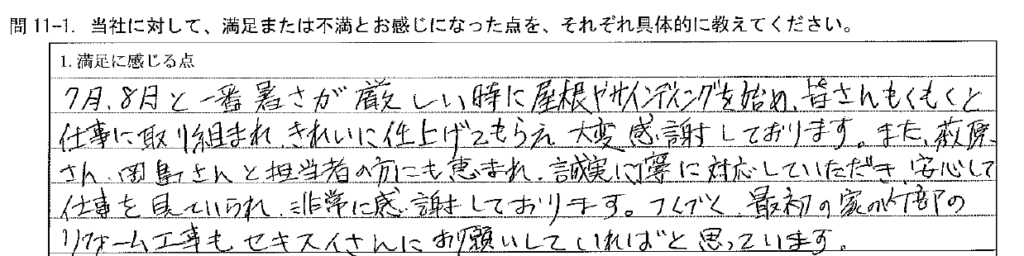 問 11-1. 当社に対して、満足または不満とお感じになった点を、それぞれ具体的に教えてください。
1. 満足に感じる点
7月、8月と一番暑さが厳しい時に屋根やサインディングを始め、皆さんもくもくと
仕事に取り組まれ、きれいに仕上げてもらえ、大変感謝しております。また、萩原
さん、岡島さんと担当者の方にも恵まれ、誠実丁寧に対応していただき、安心して
仕事を見ていられ、非常に感謝しております。つくづく、最初の家の外部の
リフォーム工事もセキスイさんにお願いしていればと思っています。